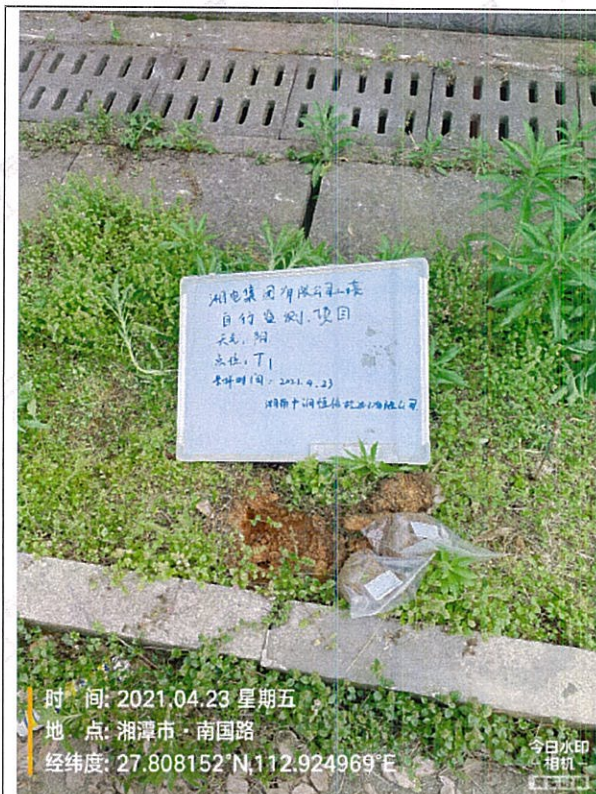 湘电集团有限公司土壤
自行监测项目
天气:阴
点位:T1
采样时间:2021.4.23
湖南中润恒信检测有限公司
时 间: 2021.04.23 星期五
地 点: 湘潭市·南国路
经纬度: 27.808152°N,112.924969°E
今日水印
-相机-